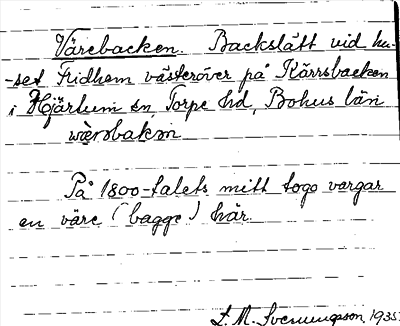 Värebacken. Backslätt vid hu-
-set Fridhem västeröver på Kärrsbacken
i Hjärtum sn, Torpe hd, Bohus län
På 1800-talets mitt togo vargar
en väre (bagge) här.
L. M. Svenungsson, 1935.